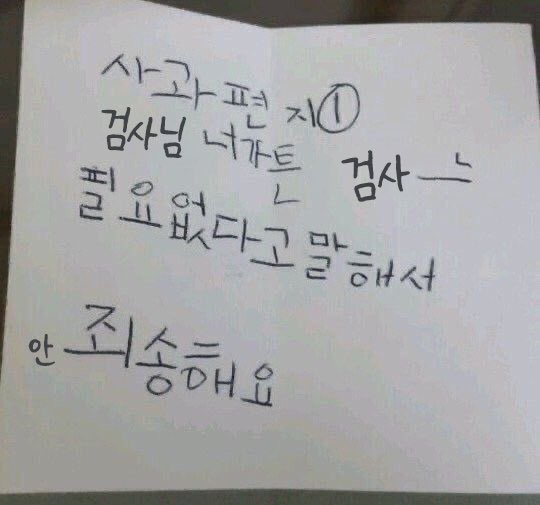 사과편지①
검사님 너가튼 검사는
필요없다고말해서
안 죄송해요